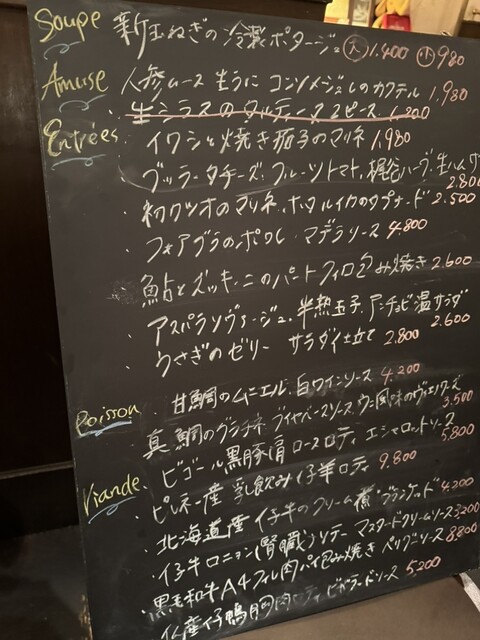 Soupe 新玉ねぎの冷製ポタージュ 大1.400 小980
Amuse 人参ムース 生うに コンソメジュレのカクテル 1.980
生シラスのタルティーヌ 2ピース 1.200
Entrées イワシと焼き茄子のマリネ 1.980
ブッラータチーズ、フルーツトマト、梶谷ハーブ、生ハム 2.800
初ガツオのマリネ、ホタルイカのタプナード 2.500
フォアグラのポワレ マデラソース 4.800
鮎とズッキーニのパートフィロ包み焼き 2.600
アスパラソヴァージュ、半熟玉子、アンチョビ 温サラダ 2.600
うさぎのゼリー サラダ仕立て 2.800
Poisson 甘鯛のムニエル、白ワインソース 4.200
真鯛のグラチネ、ブイヤベースソース、ウニ風味のヴェルタース 3.500
Viande ビゴール黒豚肩ロースロティ エシャロットソース 5.800
ピレネー産 乳飲み仔羊ロティ 9.800
北海道産 仔牛のクリーム煮 "ブランケット" 4.200
仔牛ロニョン(腎臓)ソテー マスタードクリームソース 3.200
黒毛和牛A4フィレ肉パイ包み焼き ペリグソース 8.800
仏産仔鴨胸肉ロティ ビガラードソース 5.200